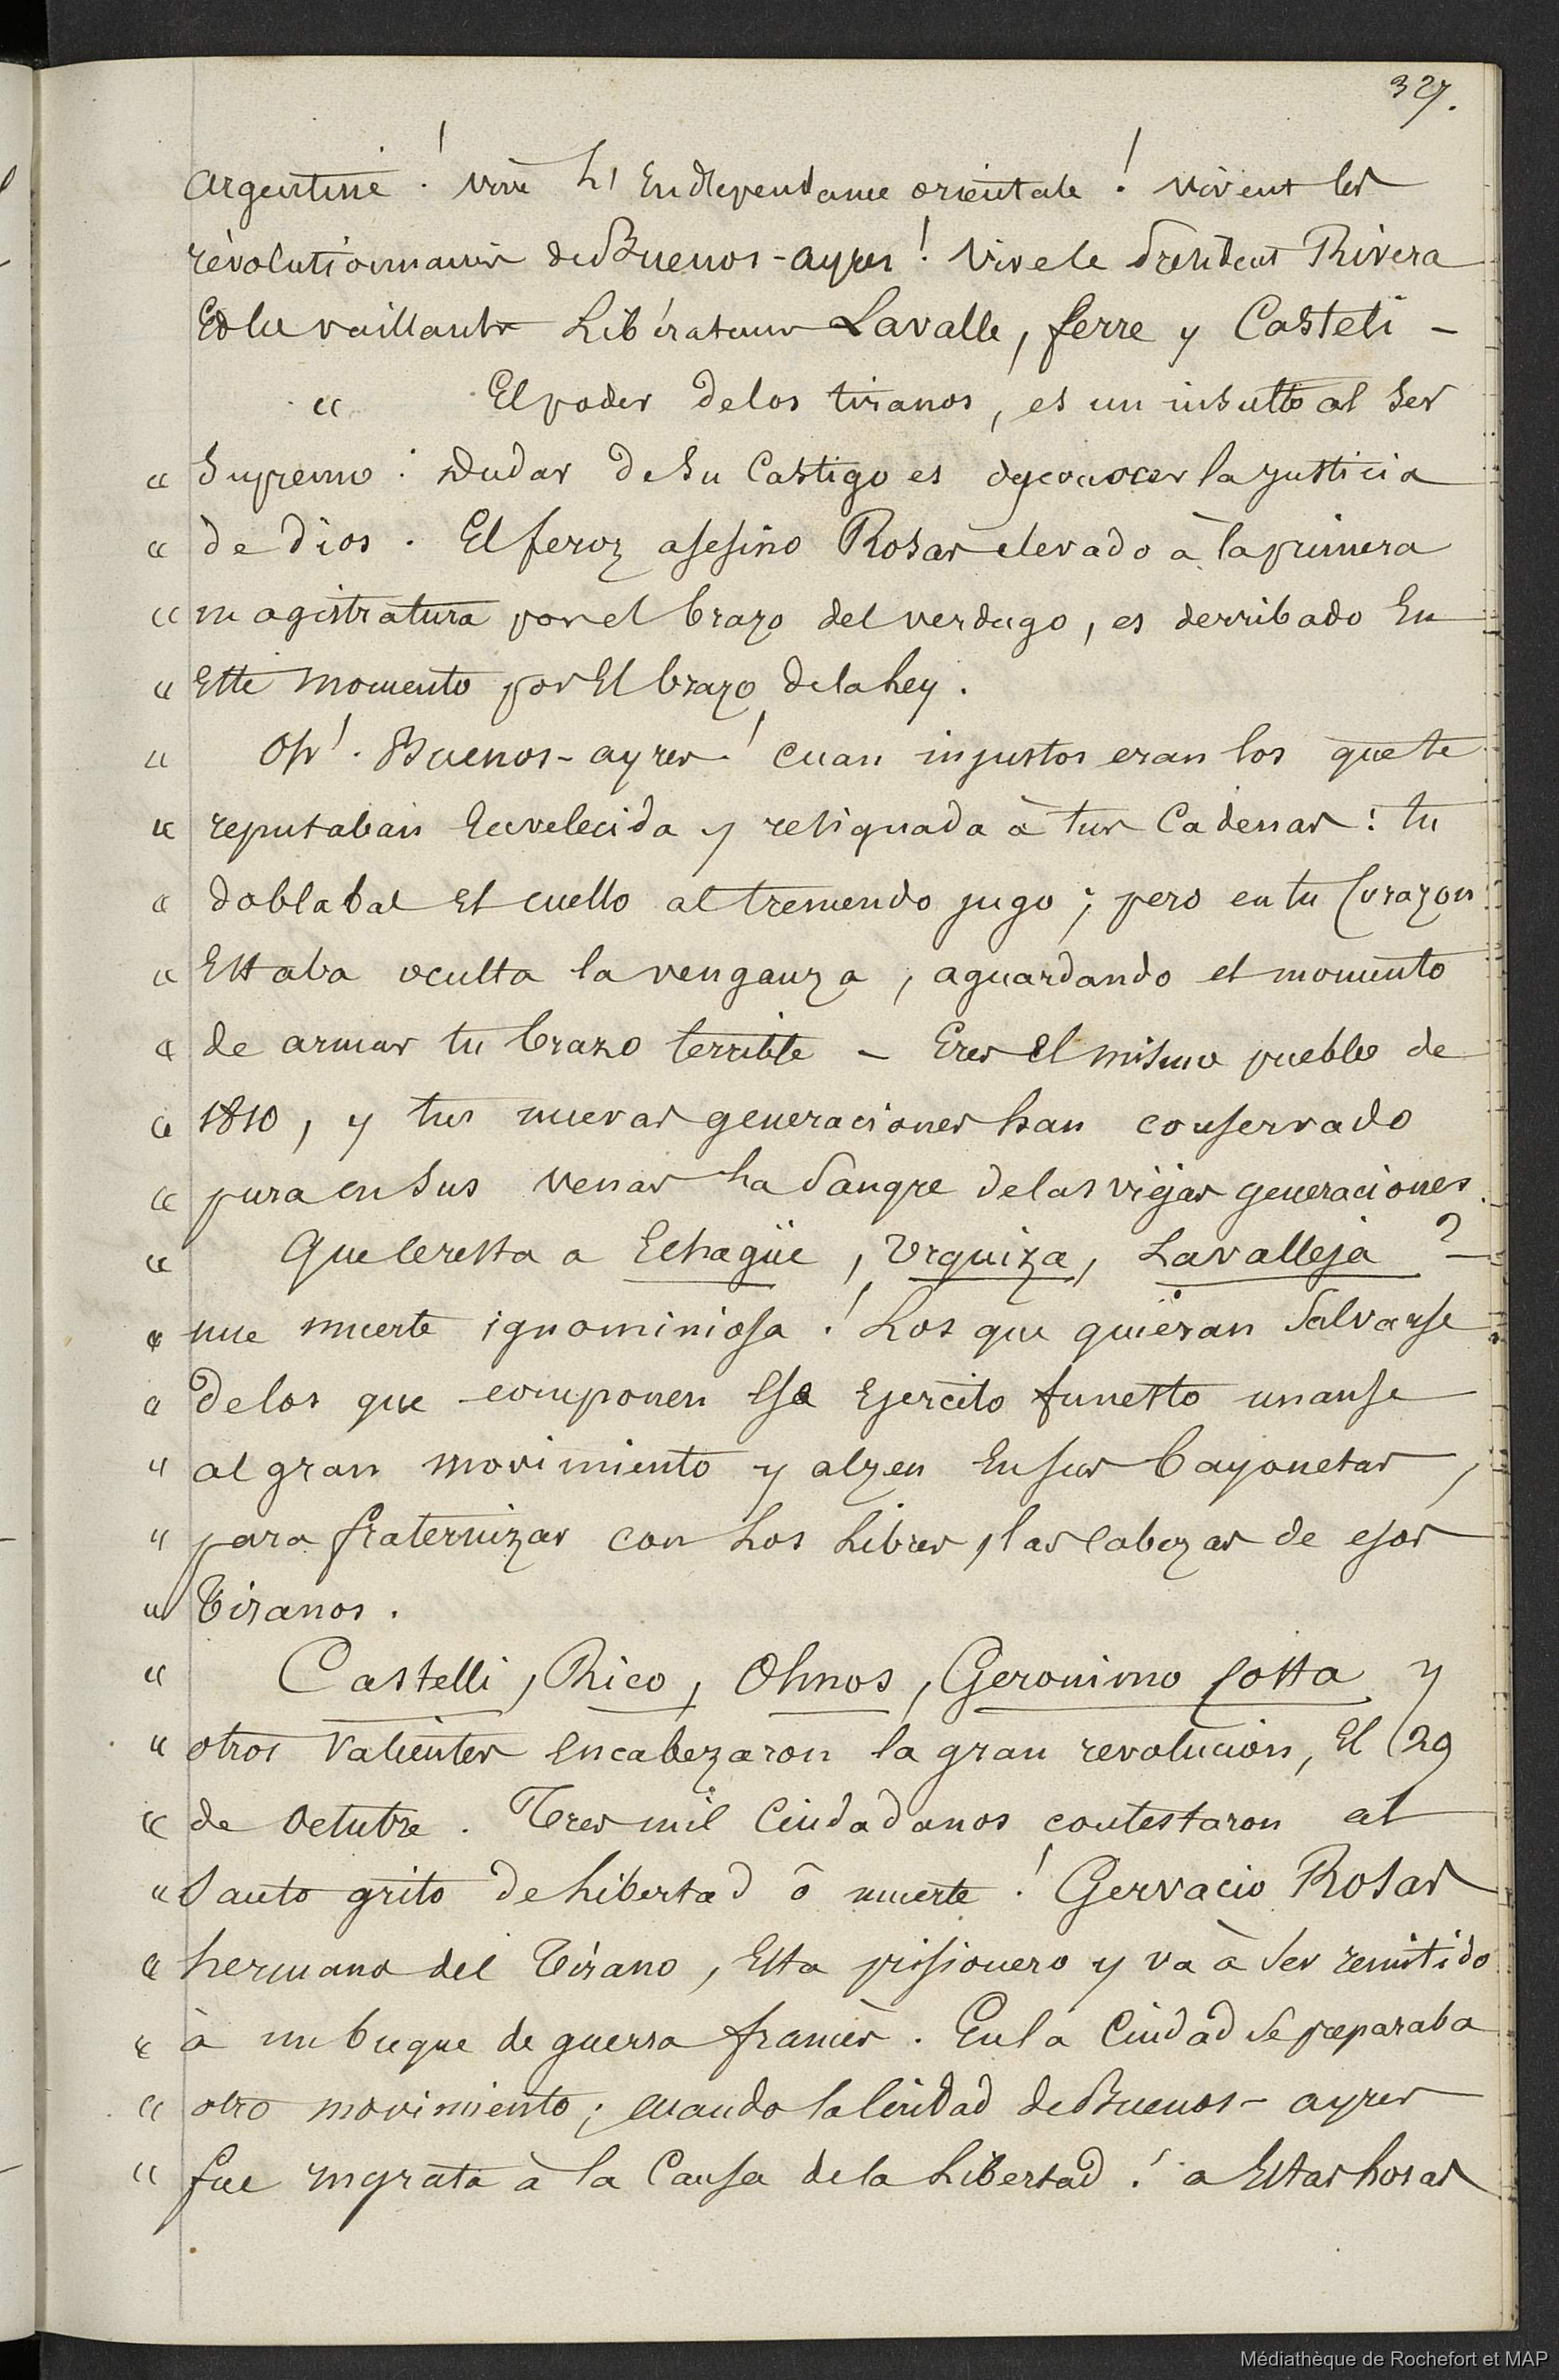 327.
argentine ! vive L'Endépendance orientale ! vivent les
révolutionnaires de Buenos-ayres ! Vive le Président Rivera
Et les vaillants Libérateurs Lavalle, ferre y Casteli -
" El poder de los tiranos, es un insulto al Ser
" Supremo : Dudar de Su Castigo es desconocer la justicia
" de Dios . El feroz asesino Rosas elevado à la primera
" magistratura por el brazo del verdugo, es derribado En
" Este momento por El brazo de la Ley .
" Oh ! Buenos-ayres ! cuan injustos eran los que te
" reputaban Envelecida y resignada à tus Cadenas : tu
" doblabas El cuello al tremendo jugo ; pero en tu Corazon
" Estaba oculta la venganza , aguardando el momento
" de armar tu brazo terrible - Eres El mismo pueblo de
" 1810 , y tus nuevas generaciones han conservado
" pura en Sus venas La Sangre de las viejas generaciones .
" Que le resta a Echagüe , Urquiza , Lavalleja ?
" une muerte ignominiosa ! Los que quieran Salvarse
" de los que componen Ese Ejercito funesto unanse
" al gran movimiento y alzen En sus bayonetas ,
" para fraternizar con Los Libres , las Cabezas de esos
" Tiranos .
" Castelli , Rico , Olmos , Geronimo Costa y
" otros Valientes Encabezaron la gran revolucion , El 29
" de Octubre . Tres mil Ciudadanos contestaron al
" Santo grito de Libertad ô muerte ! Gervacio Rosas
" hermano del Tirano , Esta prisionero y va à Ser remitido
" à un buque de guerra francès . En la Ciudad Se preparaba
" otro movimiento ; cuando la Ciudad de Buenos-ayres
" fue ingrata à la Causa de la Libertad ! a Estas horas
Médiathèque de Rochefort et MAP